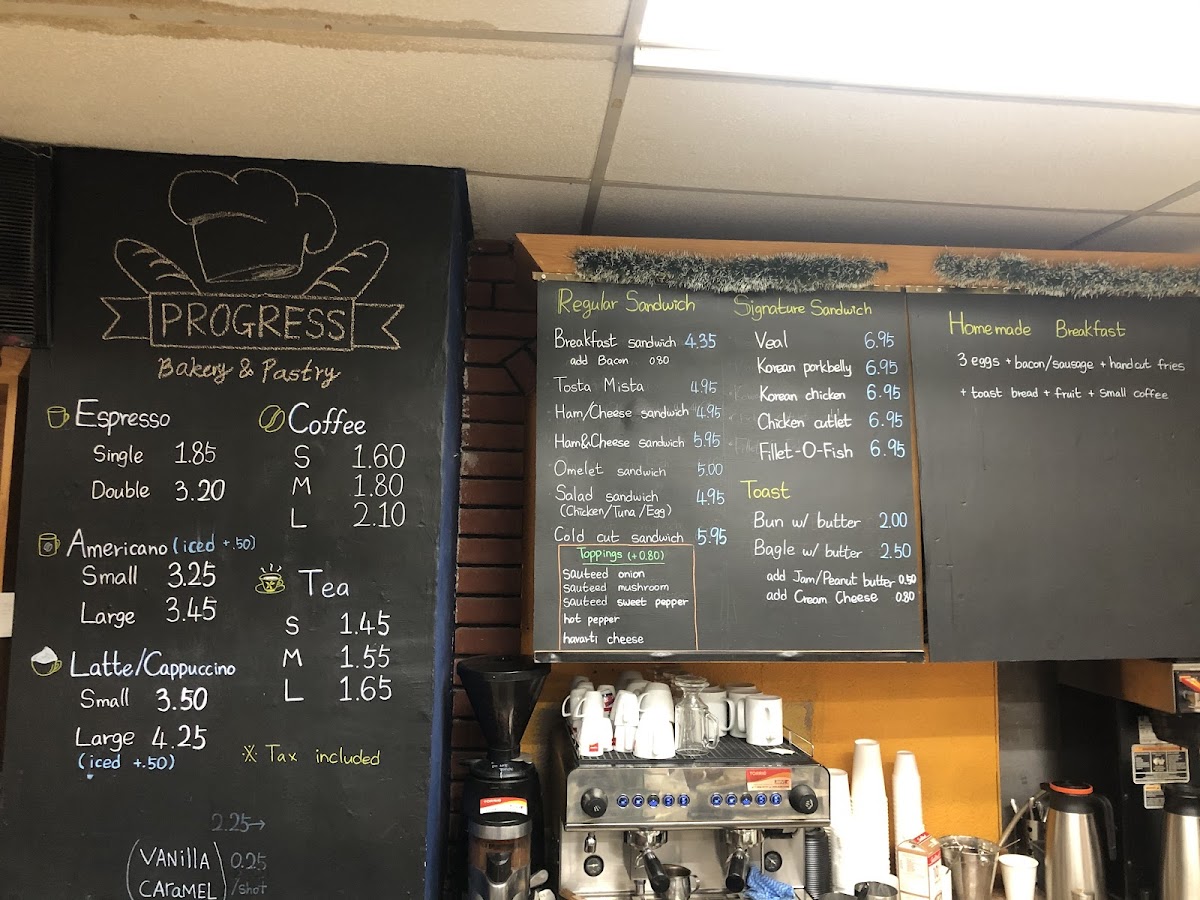 PROGRESS
Bakery & Pastry
Espresso
Single 1.85
Double 3.20
Americano (iced +.50)
Small 3.25
Large 3.45
Latte/Cappuccino
Small 3.50
Large 4.25
(iced +.50)
Coffee
S 1.60
M 1.80
L 2.10
Tea
S 1.45
M 1.55
L 1.65
※ Tax included
2.25→
VANillA 0.25
CArAMEL /shot
Regular Sandwich
Breakfast sandwich 4.35
add Bacon 0.80
Tosta Mista 4.95
Ham/Cheese sandwich 4.95
Ham&Cheese sandwich 5.95
Omelet sandwich 5.00
Salad sandwich 4.95
(Chicken/Tuna/Egg)
Cold cut sandwich 5.95
Toppings (+0.80)
sauteed onion
sauteed mushroom
sauteed sweet pepper
hot pepper
havarti cheese
Signature Sandwich
Veal 6.95
Korean porkbelly 6.95
Korean chicken 6.95
Chicken cutlet 6.95
Fillet-O-Fish 6.95
Toast
Bun w/ butter 2.00
Bagle w/ butter 2.50
add Jam/Peanut butter 0.50
add Cream Cheese 0.80
Homemade Breakfast
3 eggs + bacon/sausage + handcut fries
+ toast bread + fruit + small coffee